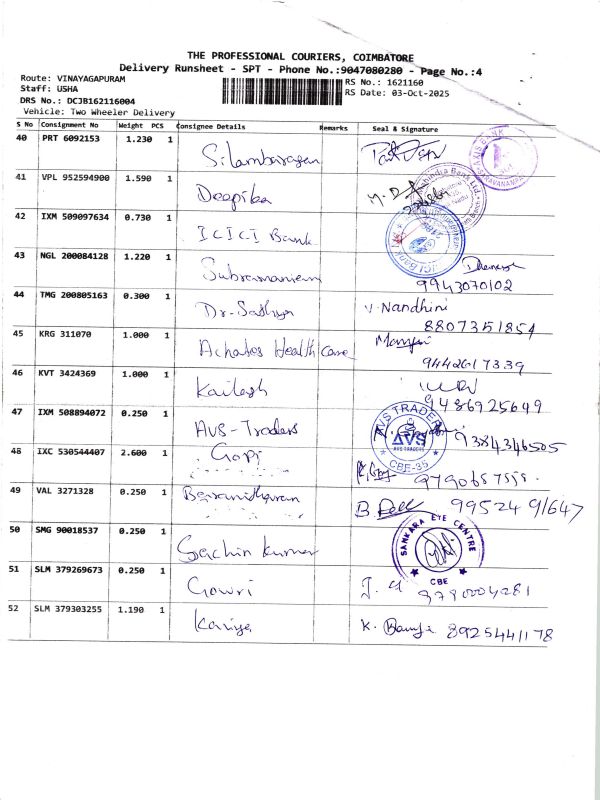 THE PROFESSIONAL COURIERS, COIMBATORE
Delivery Runsheet - SPT - Phone No.:9047080280 - Page No.:4
Route: VINAYAGAPURAM RS No.: 1621160
Staff: USHA RS Date: 03-Oct-2025
DRS No.: DCJB162116004
Vehicle: Two Wheeler Delivery
S No Consignment No Weight PCS Consignee Details Remarks Seal & Signature
40 PRT 6092153 1.230 1 Silambarasan
AXIS BANK
41 VPL 952594900 1.590 1 Deepika
42 IXM 509097634 0.730 1 ICICI Bank
43 NGL 200084128 1.220 1 Subramaniam
9943070102
44 TMG 200805163 0.300 1 Dr. Sathya V. Nandhini
8807351854
45 KRG 311070 1.000 1 Achates Health care
9442617339
46 KVT 3424369 1.000 1 Kailash
9486925649
47 IXM 508894072 0.250 1 AVS-Traders 9384346505
AVS TRADERS
AVS
CBE-35
48 IXC 530544407 2.600 1 Gopi
49 VAL 3271328 0.250 1 B. 9952491647
50 SMG 90018537 0.250 1 Sachin Kumar
SANKARA EYE CENTRE
CBE
51 SLM 379269673 0.250 1 Gowri
9790004281
52 SLM 379303255 1.190 1 Kaviya K. 8925441178